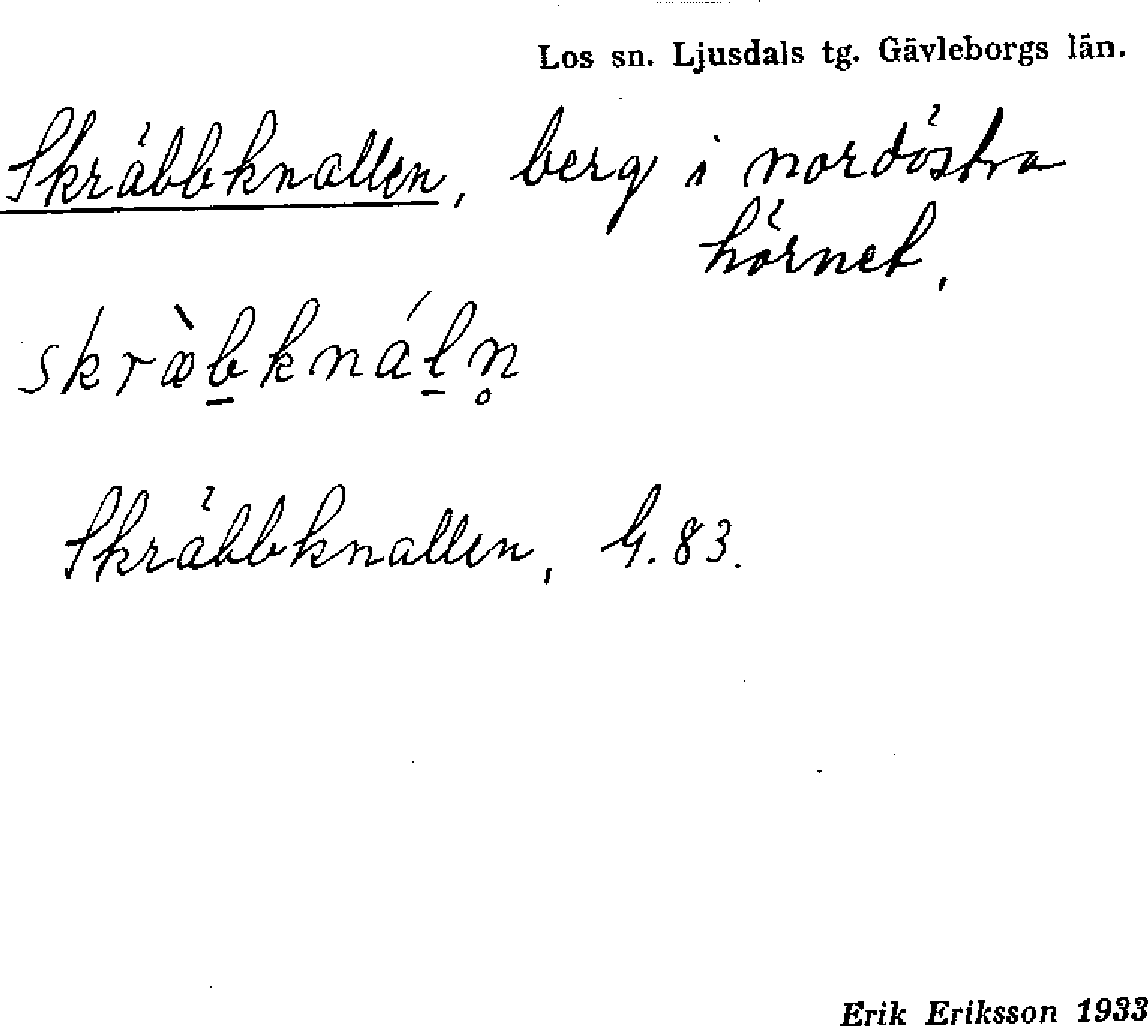 Los sn. Ljusdals tg. Gävleborgs län.
Skräbbknallen, berg i nordöstra
hörnet.
skræ̀b̲knál̲n̥
Skräbbknallen, G. 83.
Erik Eriksson 1933